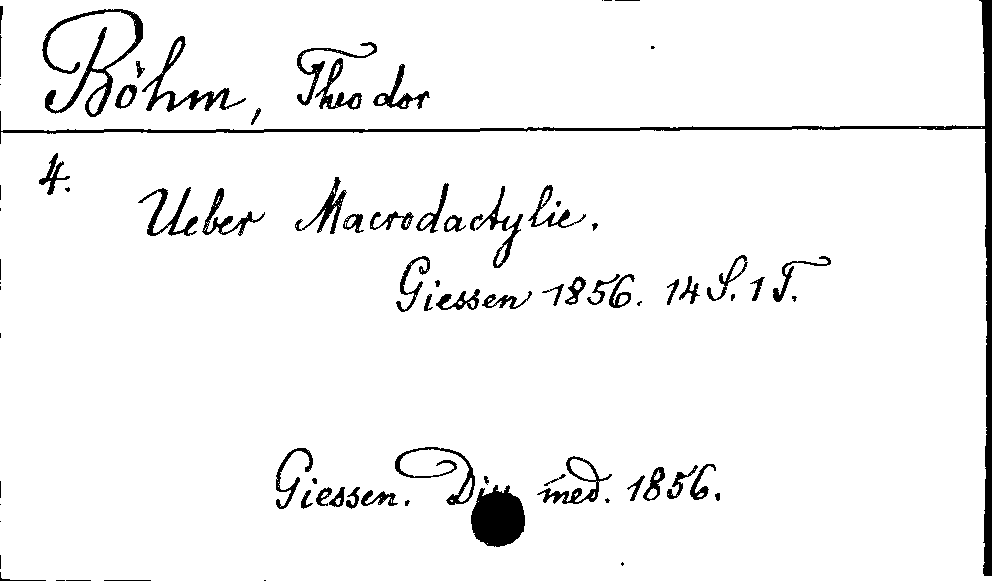 Böhm, Theodor
4.
Ueber Macrodactylie.
Giessen 1856. 14 S. 1 T.
Giessen. med. 1856.